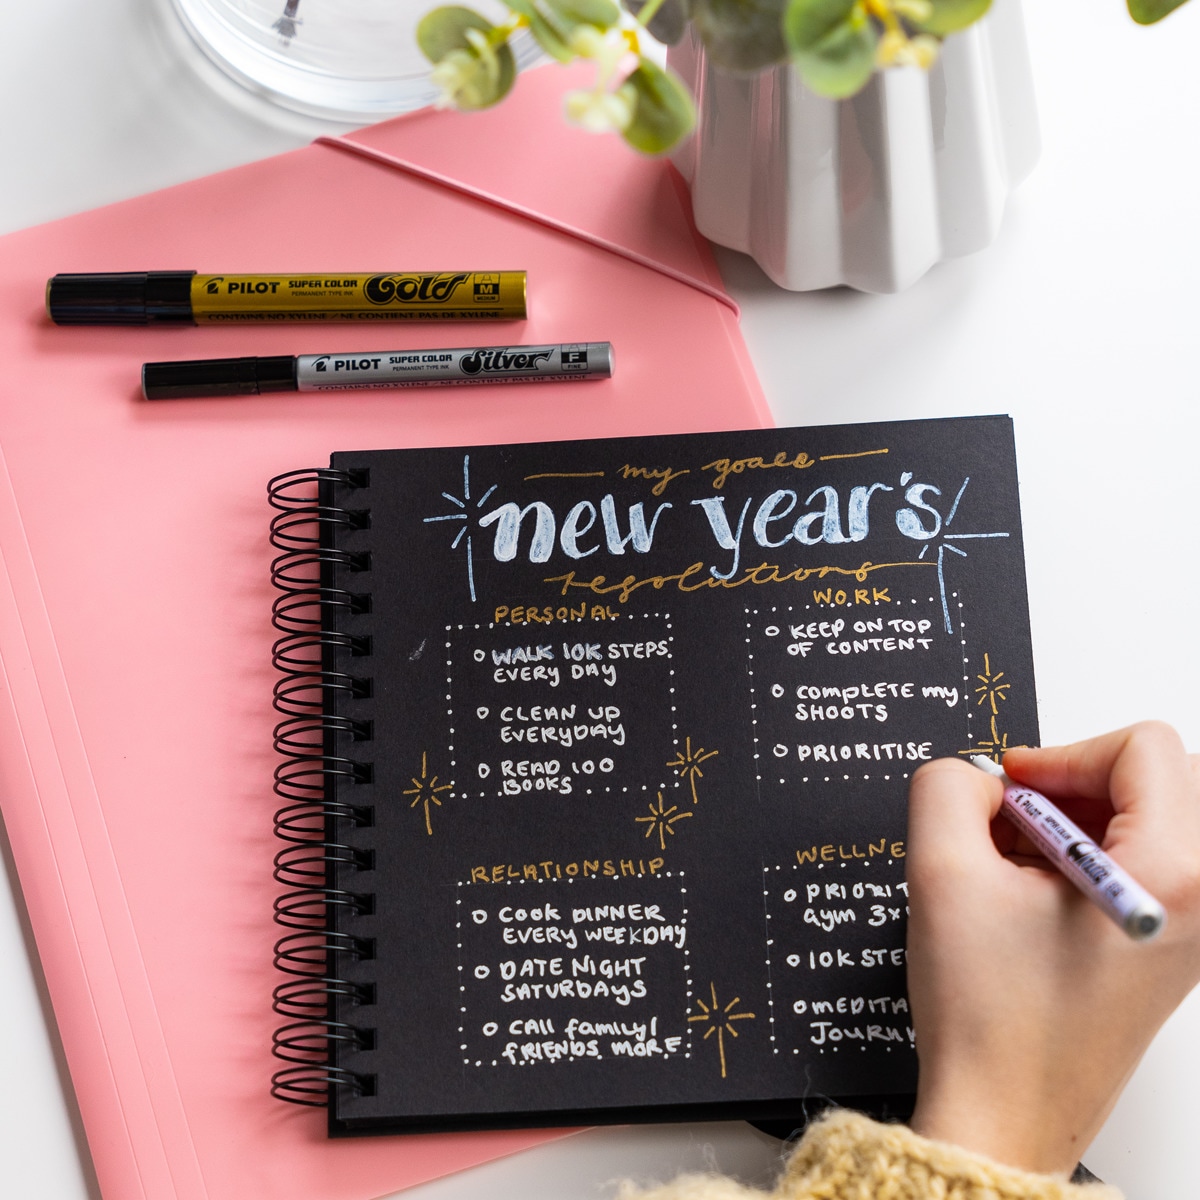 PILOT SUPER COLOR Gold M
PERMANENT TYPE INK MEDIUM
CONTAINS NO XYLENE / NE CONTIENT PAS DE XYLENE
PILOT SUPER COLOR Silver F
PERMANENT TYPE INK FINE
CONTAINS NO XYLENE / NE CONTIENT PAS DE XYLENE
my goals
new year's
resolutions
PERSONAL
WALK 10K STEPS
EVERY DAY
CLEAN UP
EVERYDAY
READ 100
BOOKS
WORK
KEEP ON TOP
OF CONTENT
COMPLETE my
SHOOTS
PRIORITISE
RELATIONSHIP
COOK DINNER
EVERY WEEKDAY
DATE NIGHT
SATURDAYS
CALL family/
FRIENDS MORE
WELLNE
PRIORIT
gym 3x
10K STE
MEDITA
JOURN
PILOT SUPER COLOR